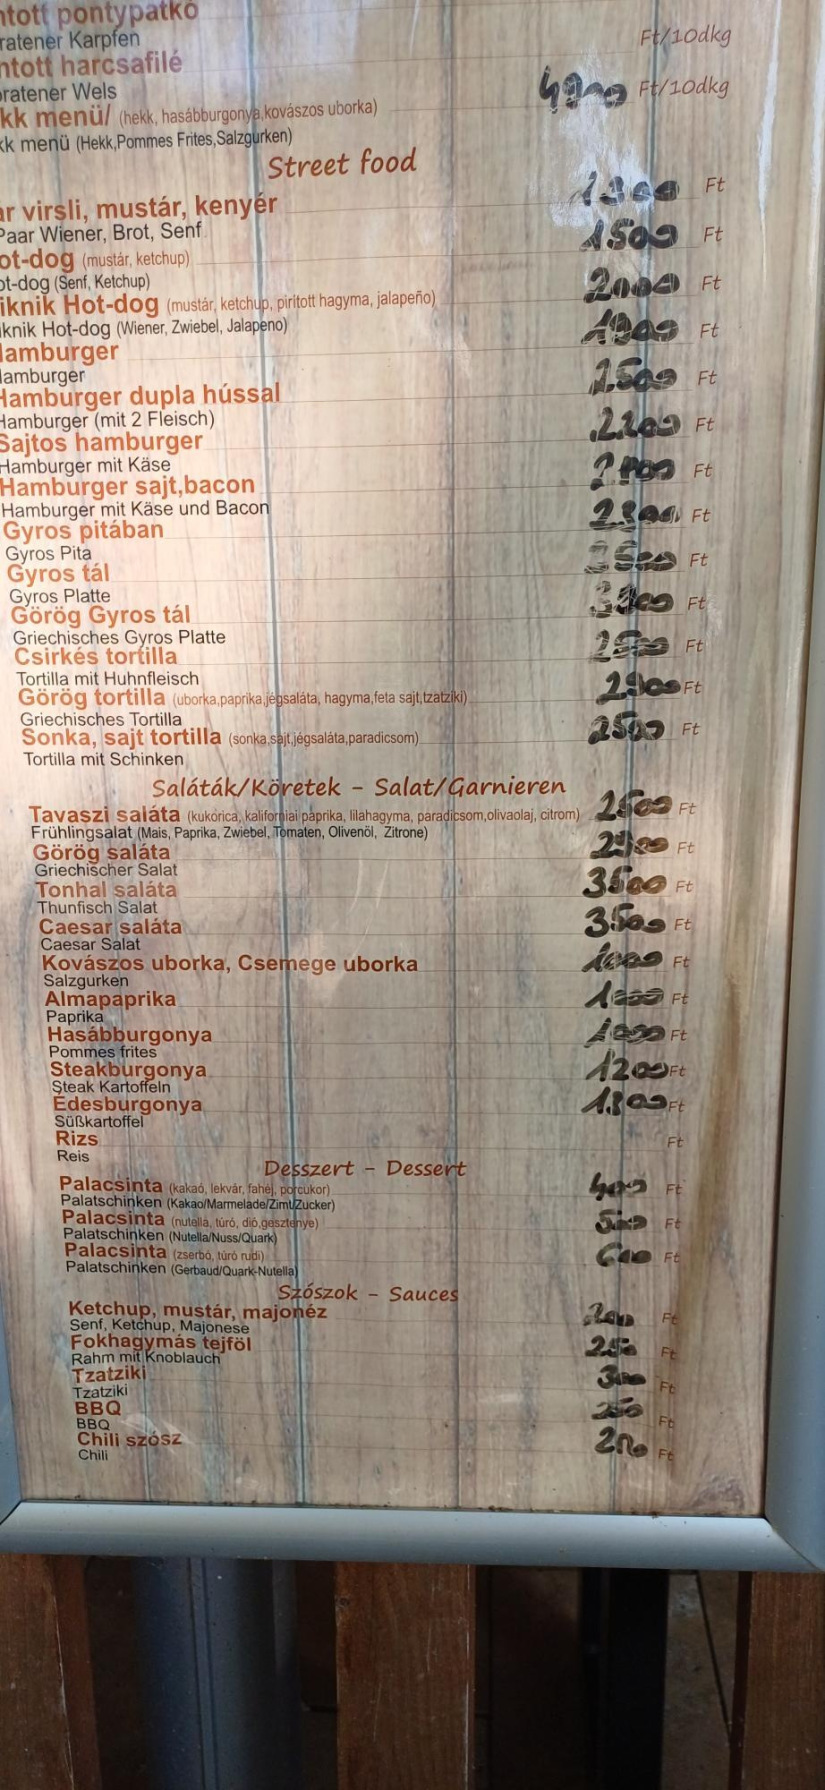 ntott pontypatkó
ratener Karpfen Ft/10dkg
ntott harcsafilé
oratener Wels Ft/10dkg
kk menü/ (hekk, hasábburgonya,kovászos uborka)
kk menü (Hekk,Pommes Frites,Salzgurken)
Street food
ár virsli, mustár, kenyér Ft
Paar Wiener, Brot, Senf
ot-dog (mustár, ketchup) 1500 Ft
ot-dog (Senf, Ketchup)
iknik Hot-dog (mustár, ketchup, pirított hagyma, jalapeño) 2000 Ft
iknik Hot-dog (Wiener, Zwiebel, Jalapeno)
Hamburger Ft
Hamburger
Hamburger dupla hússal 2500 Ft
Hamburger (mit 2 Fleisch)
Sajtos hamburger 2200 Ft
Hamburger mit Käse
Hamburger sajt,bacon Ft
Hamburger mit Käse und Bacon
Gyros pitában Ft
Gyros Pita
Gyros tál Ft
Gyros Platte
Görög Gyros tál Ft
Griechisches Gyros Platte
Csirkés tortilla Ft
Tortilla mit Huhnfleisch
Görög tortilla (uborka,paprika,jégsaláta, hagyma,feta sajt,tzatziki) Ft
Griechisches Tortilla
Sonka, sajt tortilla (sonka,sajt,jégsaláta,paradicsom) 2500 Ft
Tortilla mit Schinken
Saláták/Köretek - Salat/Garnieren
Tavaszi saláta (kukorica, kaliforniai paprika, lilahagyma, paradicsom,olivaolaj, citrom) Ft
Frühlingsalat (Mais, Paprika, Zwiebel, Tomaten, Olivenöl, Zitrone)
Görög saláta Ft
Griechischer Salat
Tonhal saláta 3500 Ft
Thunfisch Salat
Caesar saláta 3500 Ft
Caesar Salat
Kovászos uborka, Csemege uborka 1000 Ft
Salzgurken
Almapaprika 1000 Ft
Paprika
Hasábburgonya 1000 Ft
Pommes frites
Steakburgonya 1200 Ft
Steak Kartoffeln
Édesburgonya Ft
Süßkartoffel
Rizs Ft
Reis
Desszert - Dessert
Palacsinta (kakaó, lekvár, fahéj, porcukor) 400 Ft
Palatschinken (Kakao/Marmelade/Zimt/Zucker)
Palacsinta (nutella, túró, dió,gesztenye) 500 Ft
Palatschinken (Nutella/Nuss/Quark)
Palacsinta (zserbó, túró rudi) 600 Ft
Palatschinken (Gerbaud/Quark-Nutella)
Szószok - Sauces
Ketchup, mustár, majonéz 200 Ft
Senf, Ketchup, Majonese
Fokhagymás tejföl 250 Ft
Rahm mit Knoblauch
Tzatziki 300 Ft
Tzatziki
BBQ 250 Ft
BBQ
Chili szósz Ft
Chili